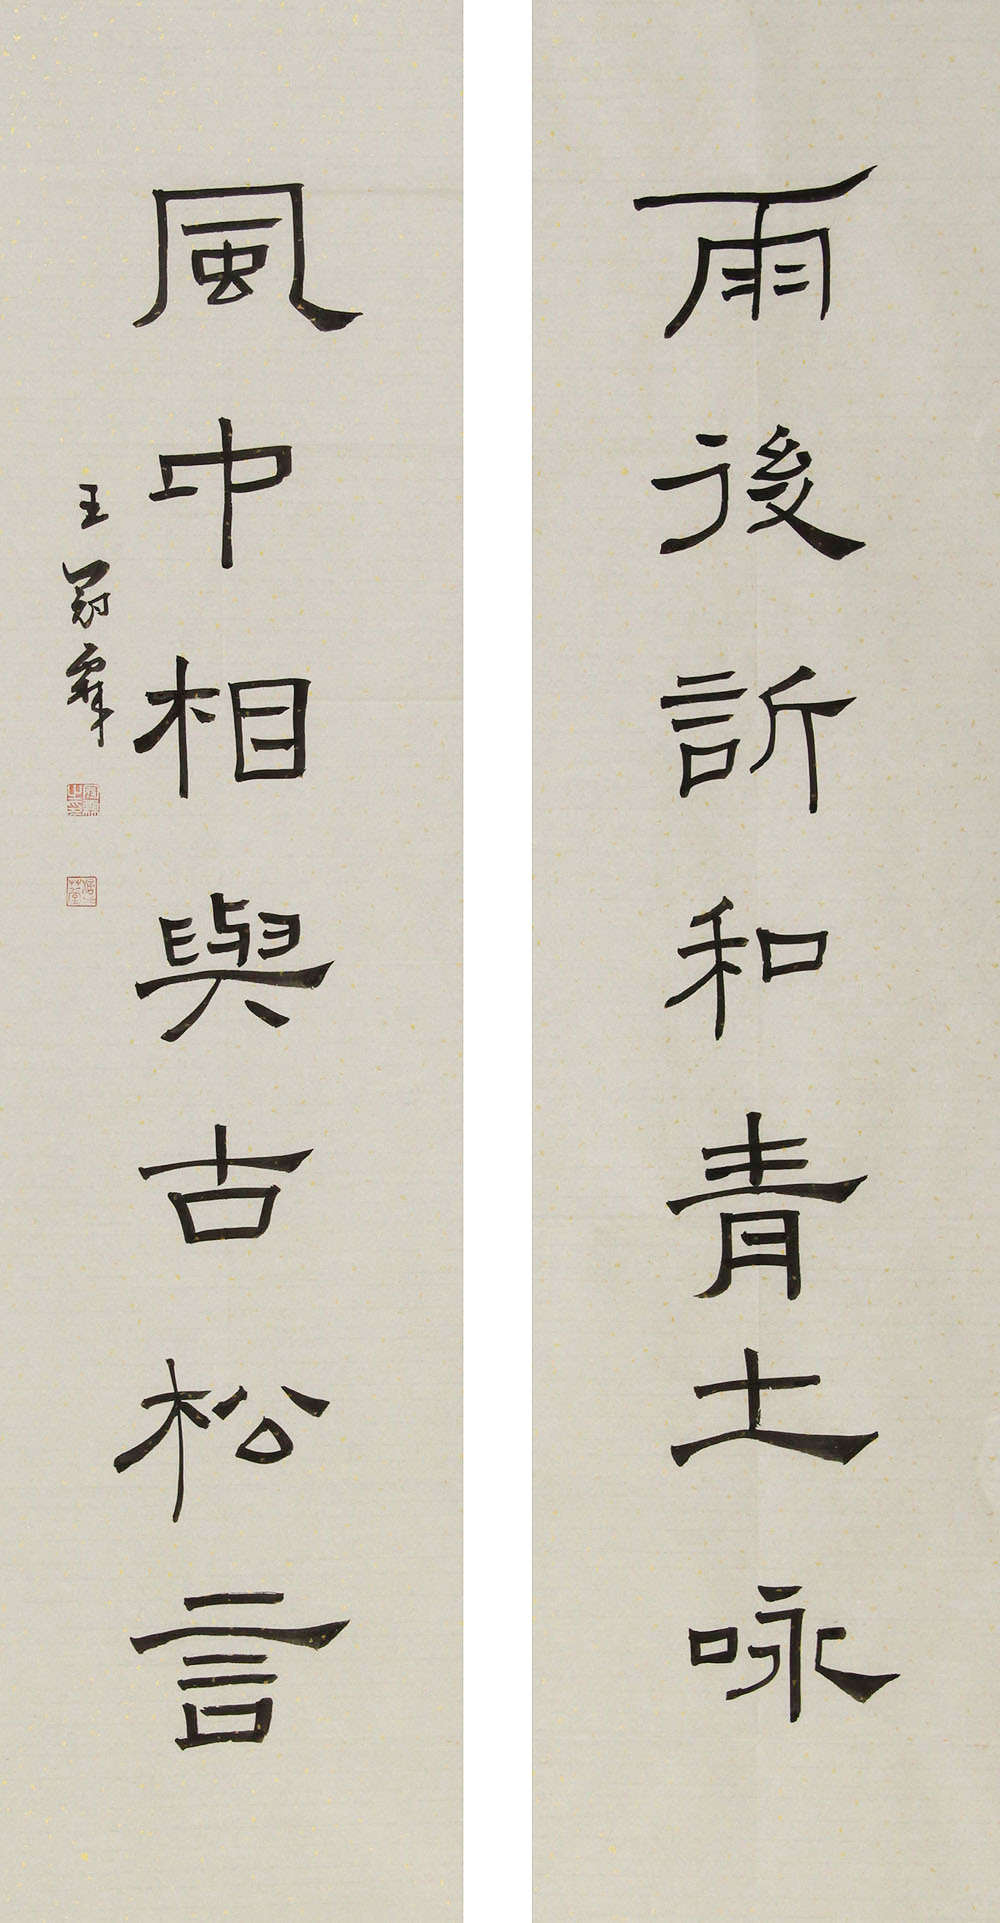 雨後訢和青土咏
風中相與古松言
王